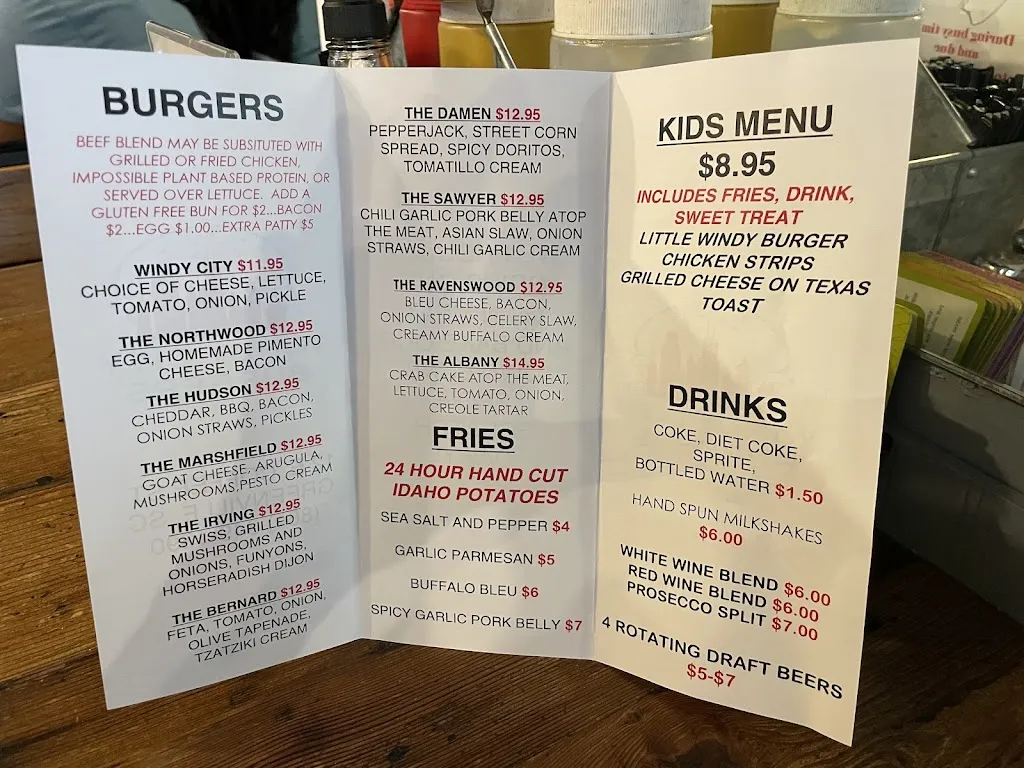 BURGERS
BEEF BLEND MAY BE SUBSITUTED WITH
GRILLED OR FRIED CHICKEN,
IMPOSSIBLE PLANT BASED PROTEIN, OR
SERVED OVER LETTUCE. ADD A
GLUTEN FREE BUN FOR $2...BACON
$2...EGG $1.00...EXTRA PATTY $5
WINDY CITY $11.95
CHOICE OF CHEESE, LETTUCE,
TOMATO, ONION, PICKLE
THE NORTHWOOD $12.95
EGG, HOMEMADE PIMENTO
CHEESE, BACON
THE HUDSON $12.95
CHEDDAR, BBQ, BACON,
ONION STRAWS, PICKLES
THE MARSHFIELD $12.95
GOAT CHEESE, ARUGULA,
MUSHROOMS,PESTO CREAM
THE IRVING $12.95
SWISS, GRILLED
MUSHROOMS AND
ONIONS, FUNYONS,
HORSERADISH DIJON
THE BERNARD $12.95
FETA, TOMATO, ONION,
OLIVE TAPENADE,
TZATZIKI CREAM
THE DAMEN $12.95
PEPPERJACK, STREET CORN
SPREAD, SPICY DORITOS,
TOMATILLO CREAM
THE SAWYER $12.95
CHILI GARLIC PORK BELLY ATOP
THE MEAT, ASIAN SLAW, ONION
STRAWS, CHILI GARLIC CREAM
THE RAVENSWOOD $12.95
BLEU CHEESE, BACON,
ONION STRAWS, CELERY SLAW,
CREAMY BUFFALO CREAM
THE ALBANY $14.95
CRAB CAKE ATOP THE MEAT,
LETTUCE, TOMATO, ONION,
CREOLE TARTAR
FRIES
24 HOUR HAND CUT
IDAHO POTATOES
SEA SALT AND PEPPER $4
GARLIC PARMESAN $5
BUFFALO BLEU $6
SPICY GARLIC PORK BELLY $7
KIDS MENU
$8.95
INCLUDES FRIES, DRINK,
SWEET TREAT
LITTLE WINDY BURGER
CHICKEN STRIPS
GRILLED CHEESE ON TEXAS
TOAST
DRINKS
COKE, DIET COKE,
SPRITE,
BOTTLED WATER $1.50
HAND SPUN MILKSHAKES
$6.00
WHITE WINE BLEND $6.00
RED WINE BLEND $6.00
PROSECCO SPLIT $7.00
4 ROTATING DRAFT BEERS
$5-$7
During busy tim
and due